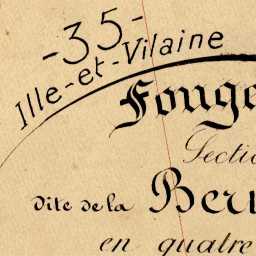 -35-
Ille-et-Vilaine
Fouge
Sectio
dite de la Ber
en quatre